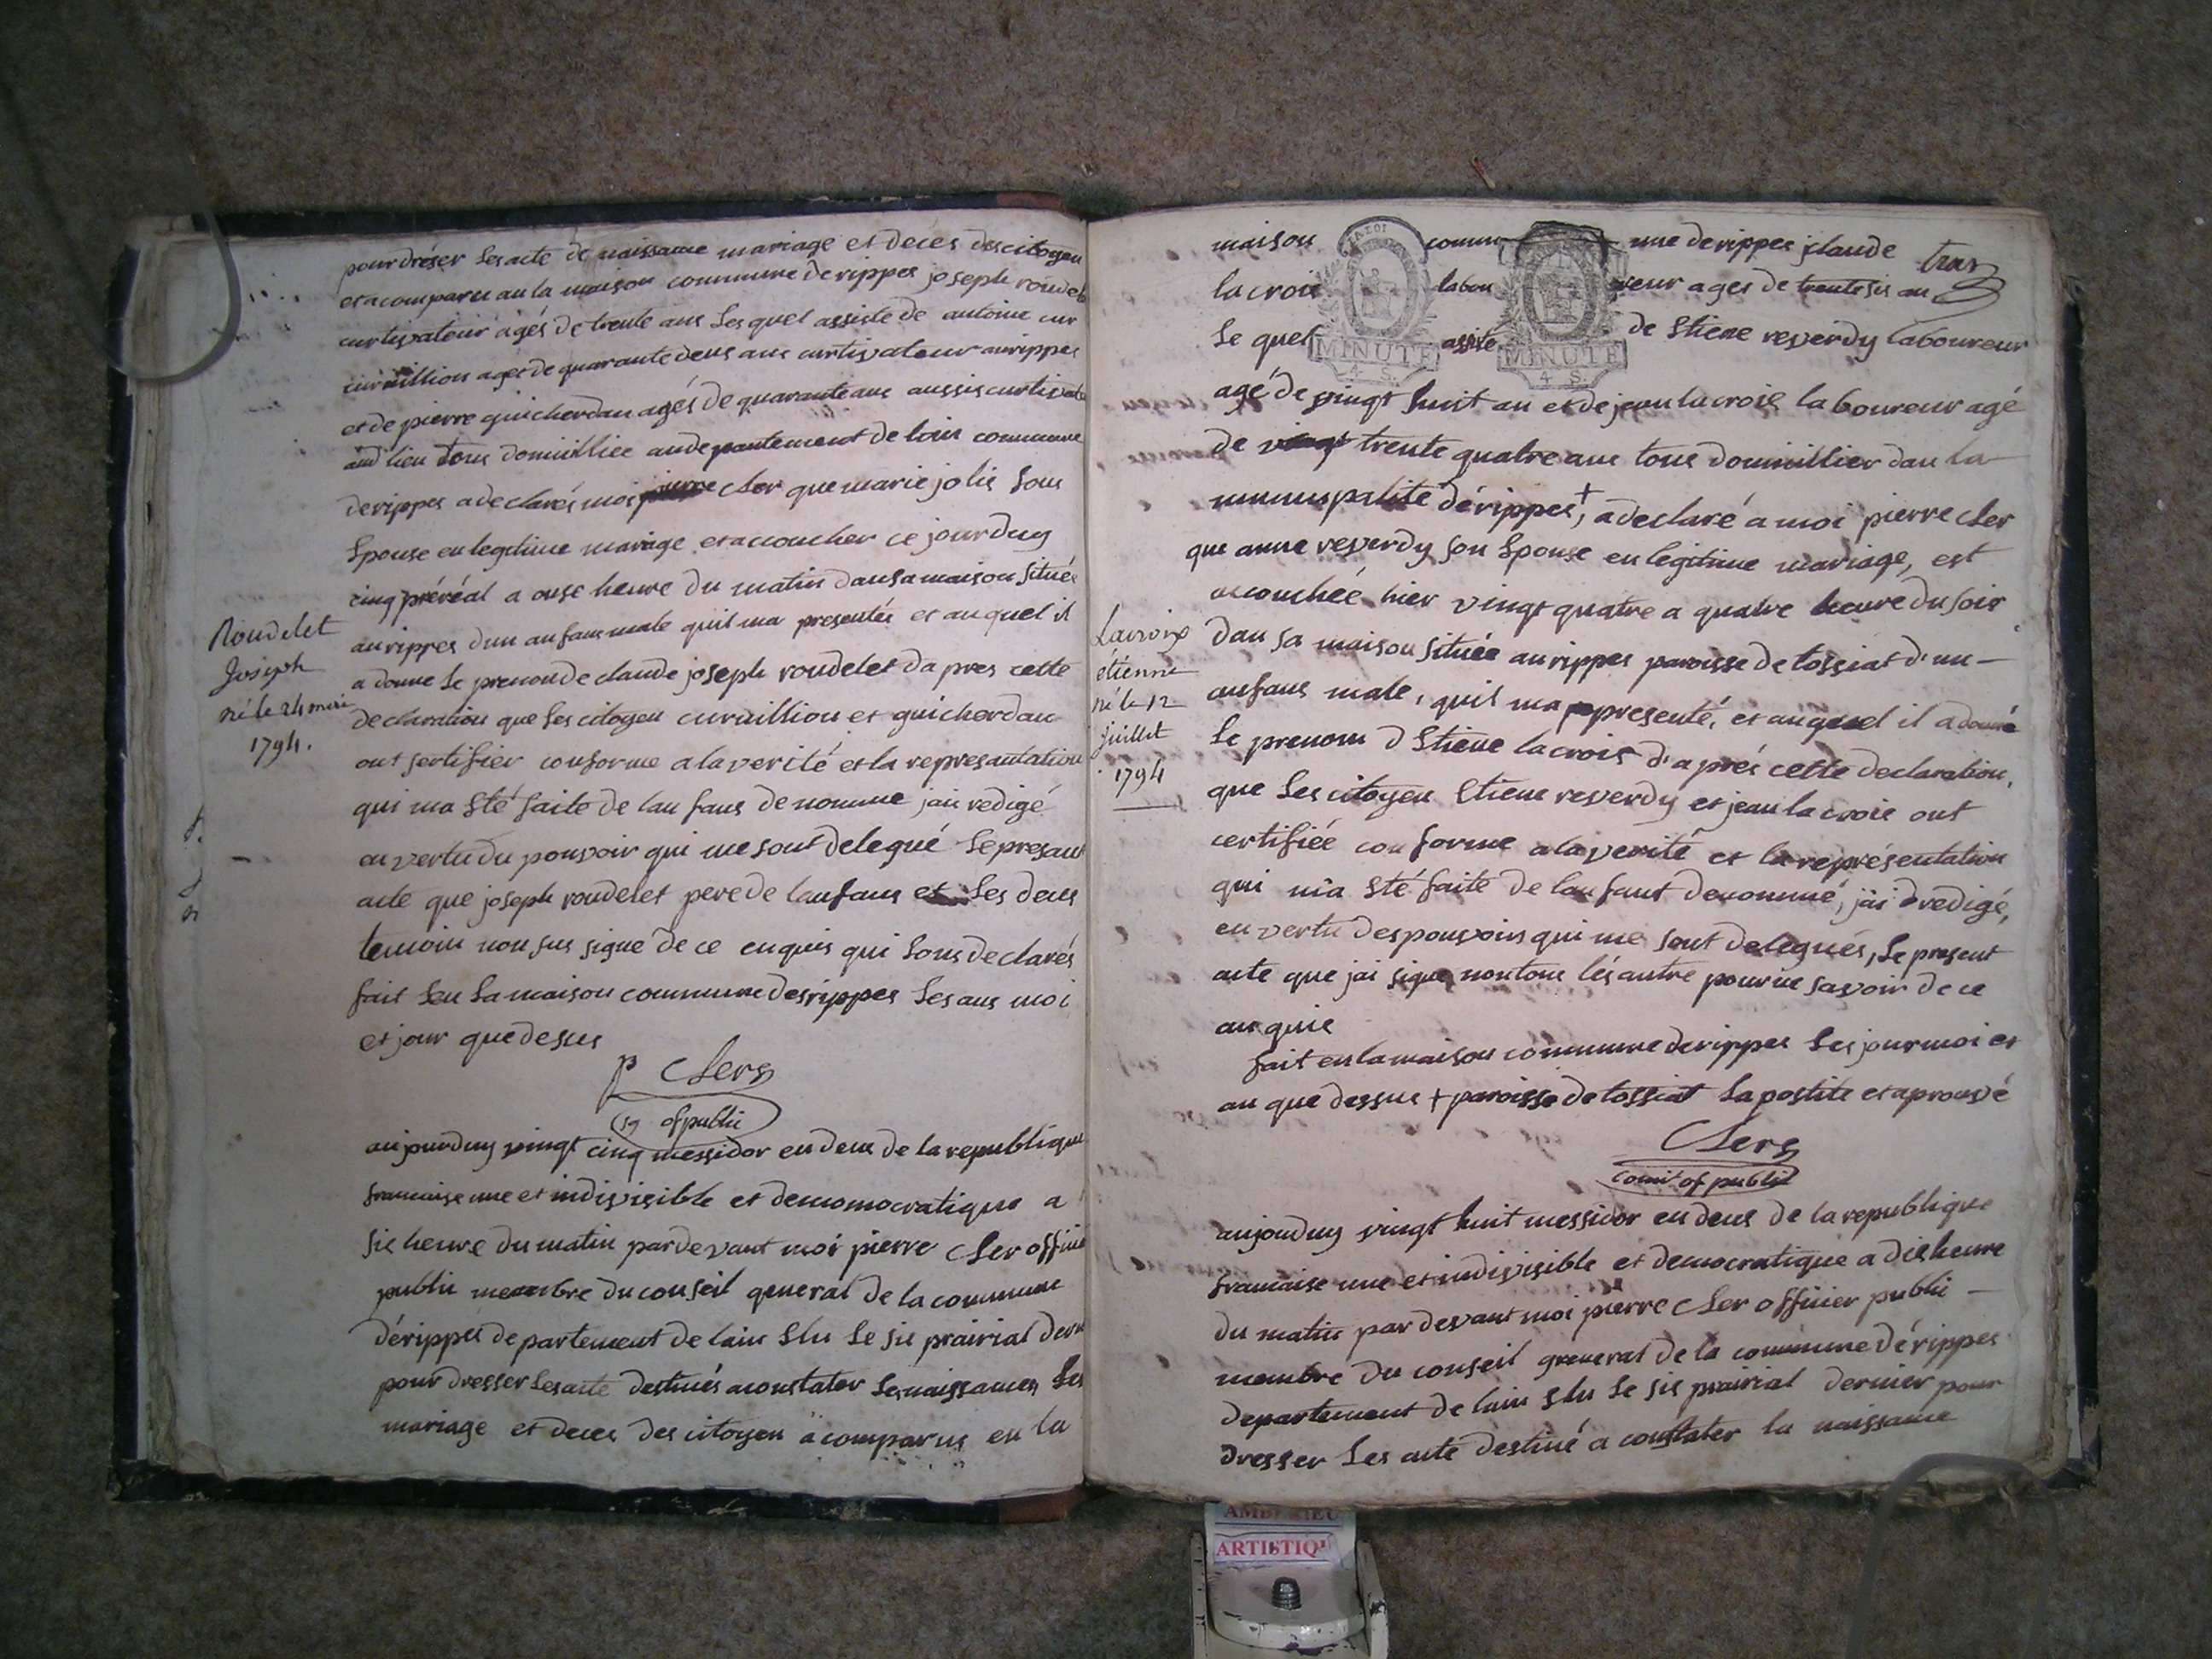 pour dréser les acte de naissance mariage et deces des citoyen
et a comparu au la maison commune de rippes joseph roudelet
curtivateur agés de trente ans Lesquel assiste de antoine cur
curvillion agés de quarante deus ans curtivateur au rippes
et de pierre guicherdan agés de quarante ans aussis curtivate
aud lieu tous domicilliee au departement de loin commune
de rippes a declarés moi pierre Cler que marie jolis sous
Spouse en legitime mariage et accoucher ce jourduy
cinq préréal a onse heure du matin dans a maison située
au rippes dun anfans male quil ma presentée et auquel il
a donne Le prenon de claude joseph roudelet da pres cette
declaration que Les citoyen curvillion et guicherdan
ont sertifier conforme a la verité et la represantation
qui ma Sté faite de lanfans denomme jai redigé
en vertu du pouvoir qui me sont delegué Le presant
acte que joseph roudelet pere de lanfans et Les deus
temoin non sus signe de ce enquis qui Sons declarés
fait Sen La maison commune des rippes Les ans moi
et jour que desus
P Clerg
sg of public
Roudelet
Joseph
né le 24 mai
1794.
aujourduy vingt cinq messidor en deus de la republique
francaise une et indivisible et demomocratique a
sis heure du matin par devant moi pierre Cler offici
public membre du conseil general de la commune
dérippes departement de lain Slu Le sis prairial dern
pour dresser Les acte destinés a constater Les naissances Les
mariage et deces des citoyen a comparus en la
maison commu une de rippes claude tras
la crois labou reur ages de trente sis an
Le quel assité de Stiene reverdy laboureur
MINUTE
4 S.
MINUTE
4 S.
agé de vingt huit an et de jean lacroie laboureur agé
de vingt trente quatre ans tous domicillier dan la
municipalité dérippes +, a declaré a moi pierre Cler
que anne reverdy son Spouse en légitime mariage, est
accouchée hier vingt quatre a quatre heure du soir
dan sa maison située au rippes paroisse de tossiat d'un
anfans male, quil ma presenté, et auquel il a donné
Le prenom d Stiene lacrois d'aprés cette declaration,
que Les citoyen Etiene reverdy et jean lacroie ont
certifiée conforme a la verité et la représentation
qui m'a Sté faite de lanfant denommé, j'ai redigé,
en vertu des pouvoirs qui me sont delegués, Le present
acte que jai signe non tous lés autre pour ne savoir de ce
anquie
fait en la maison commune de rippes Les jour moi et
an que dessus + paroisse de tossiat La postile et aprouvé
Clerg
comit of public
Lacroix
étienne
né le 12
juillet
1794
aujouduy vingt huit messidor en deus de la republique
francaise une et indivisible et democratique a dis heure
du matin par devant moi pierre Cler officier public
membre du conseil general de la commune dérippes
departement de lain Slu Le sis prairial dernier pour
dresser Les acte destiné a constater la naissance
ARTISTIQU